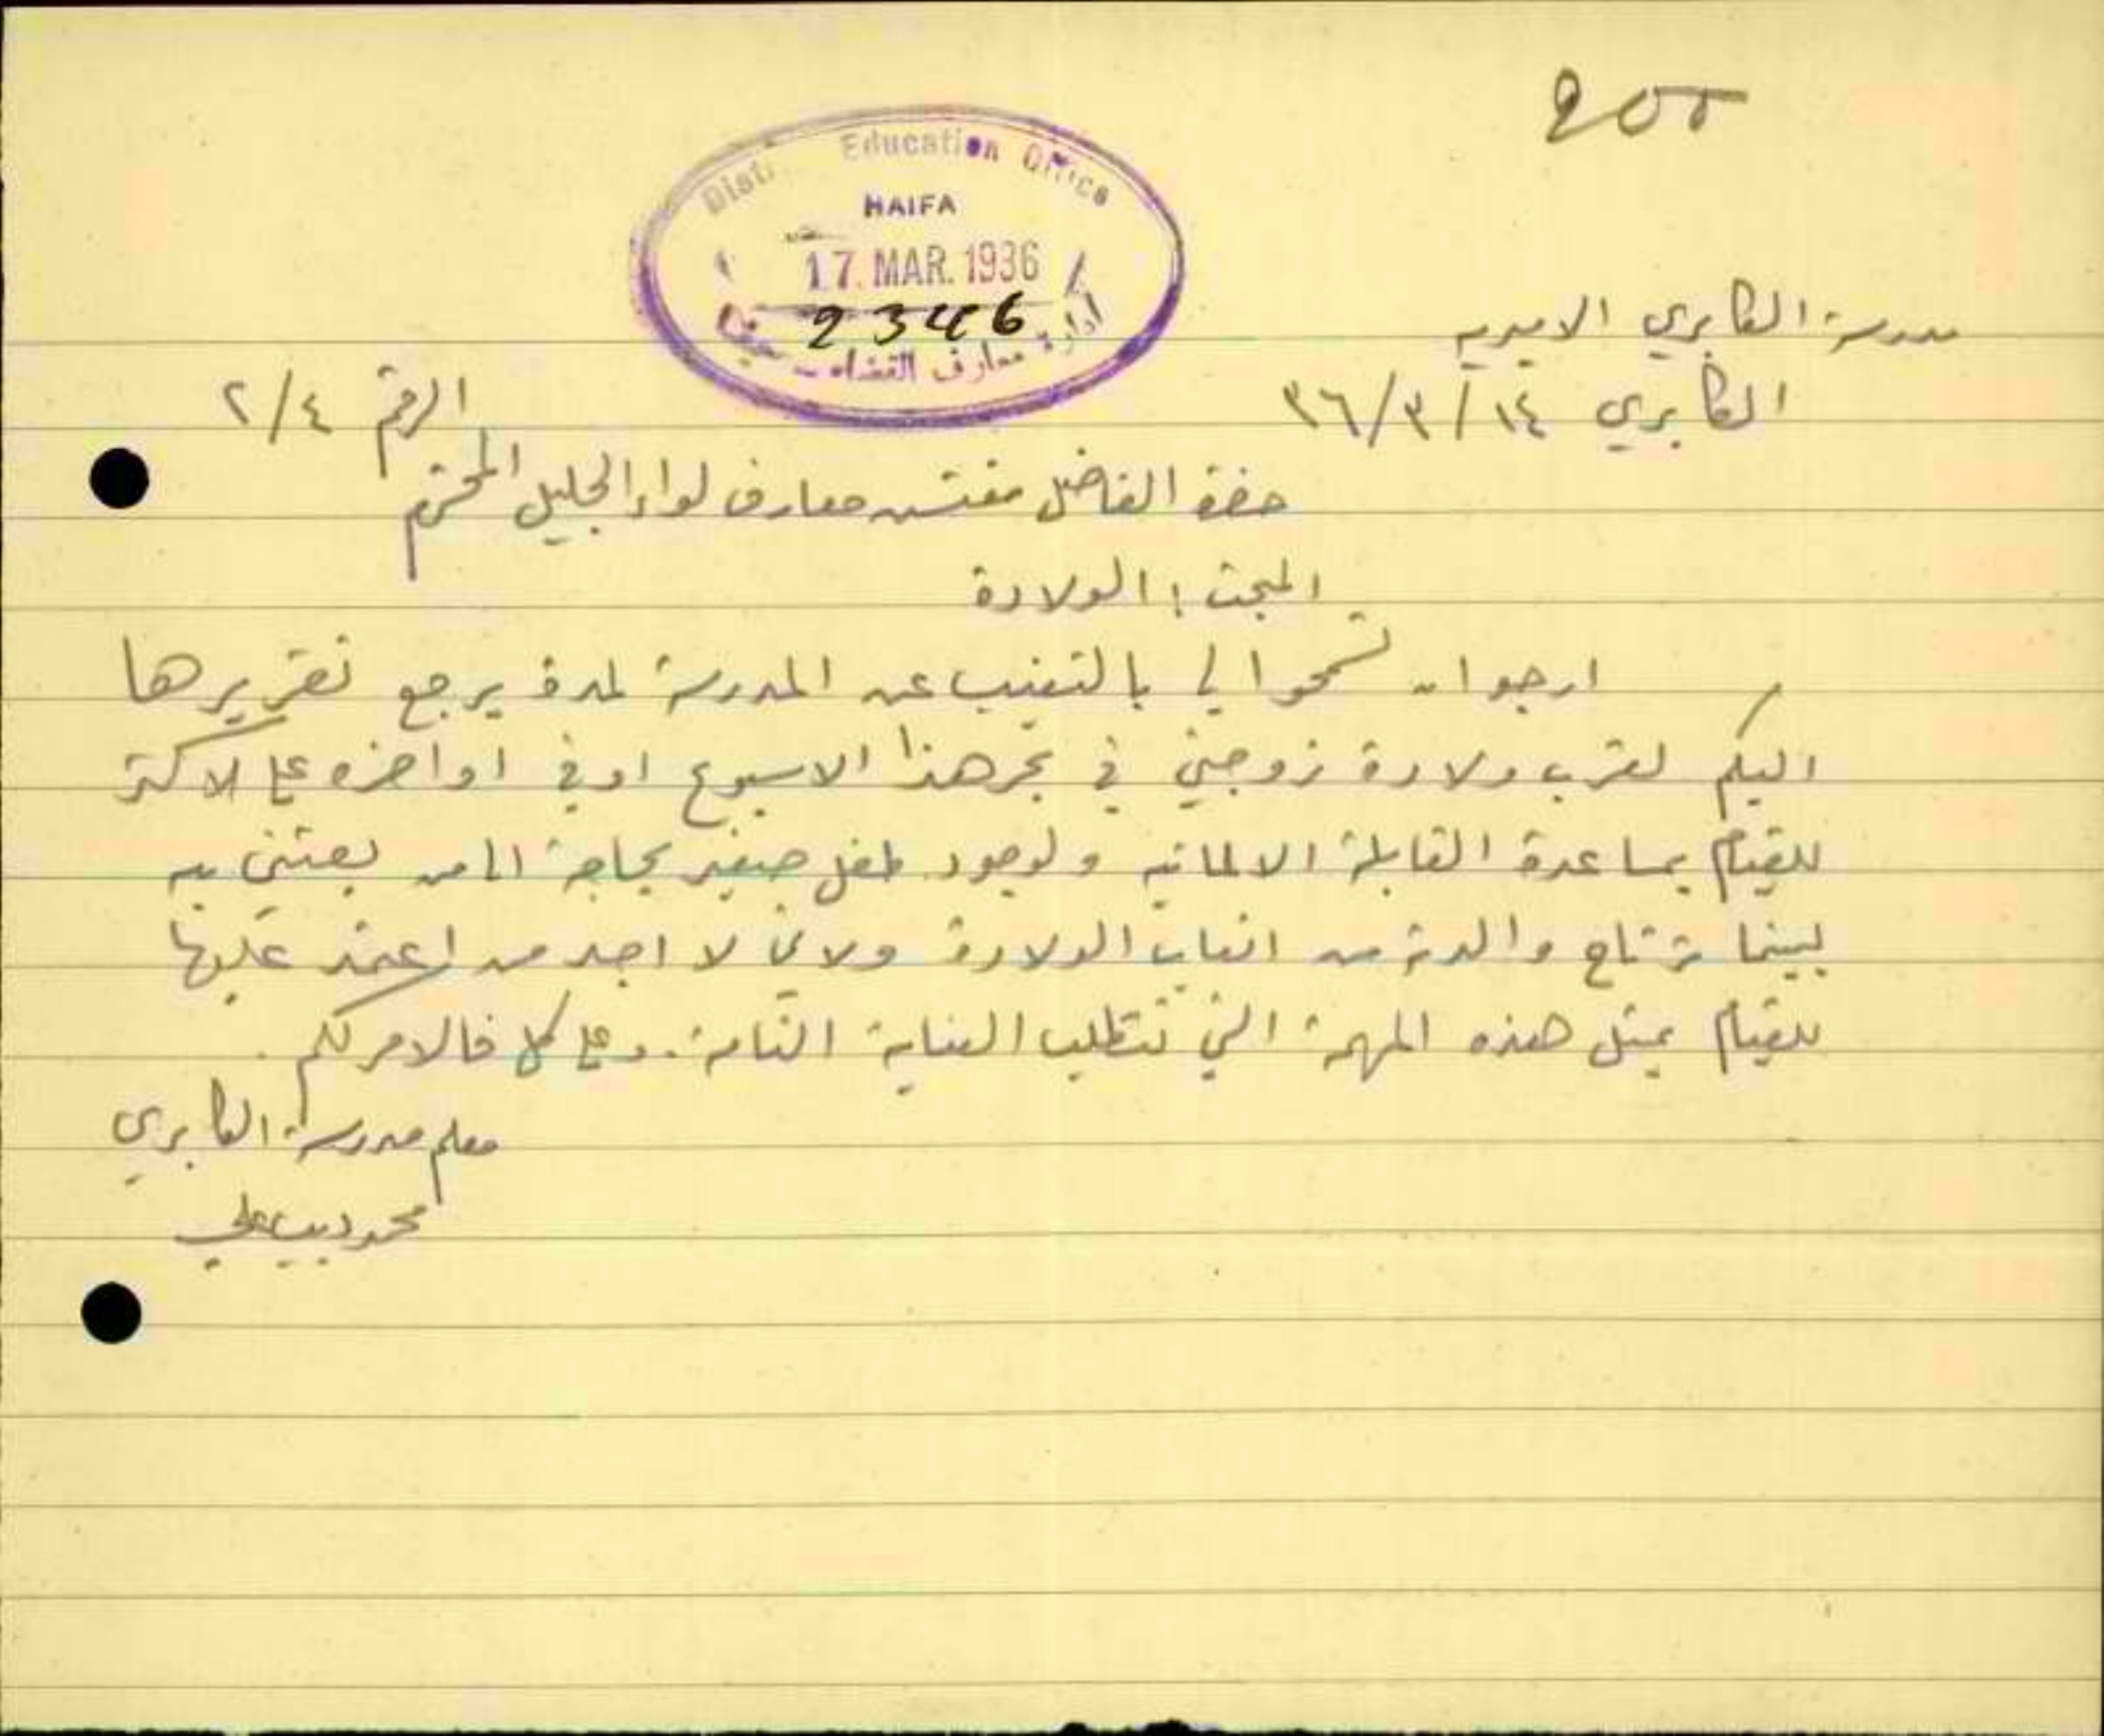 200
Distr Education Office
HAIFA
17. MAR. 1936
2346
ادارة معارف القضاء - حيفا
مدرسة الكابري الاميريه
الكابري ١٤/٣/٣٦
الرقم ٢/٤
حضرة الفاضل مفتش معارف لواء الجليل المحترم
المبحث : الولادة
ارجو ان تسمحوا لي بالتغيب عن المدرسة لمدة يرجع تقريرها
اليكم لقرب ولادة زوجتي في بحر هذا الاسبوع او في اواخره على الاكثر
للقيام بمساعدة القابلة الالمانيه ولوجود طفل صغير بحاجة الى من يعتني به
بينما ترتاح والدته من اتعاب الولادة ولاني لا اجد من اعتمد عليها
للقيام بمثل هذه المهمة التي تتطلب العناية التامة. وعلى كل فالامر لكم.
معلم مدرسة الكابري
محمود ديب علي